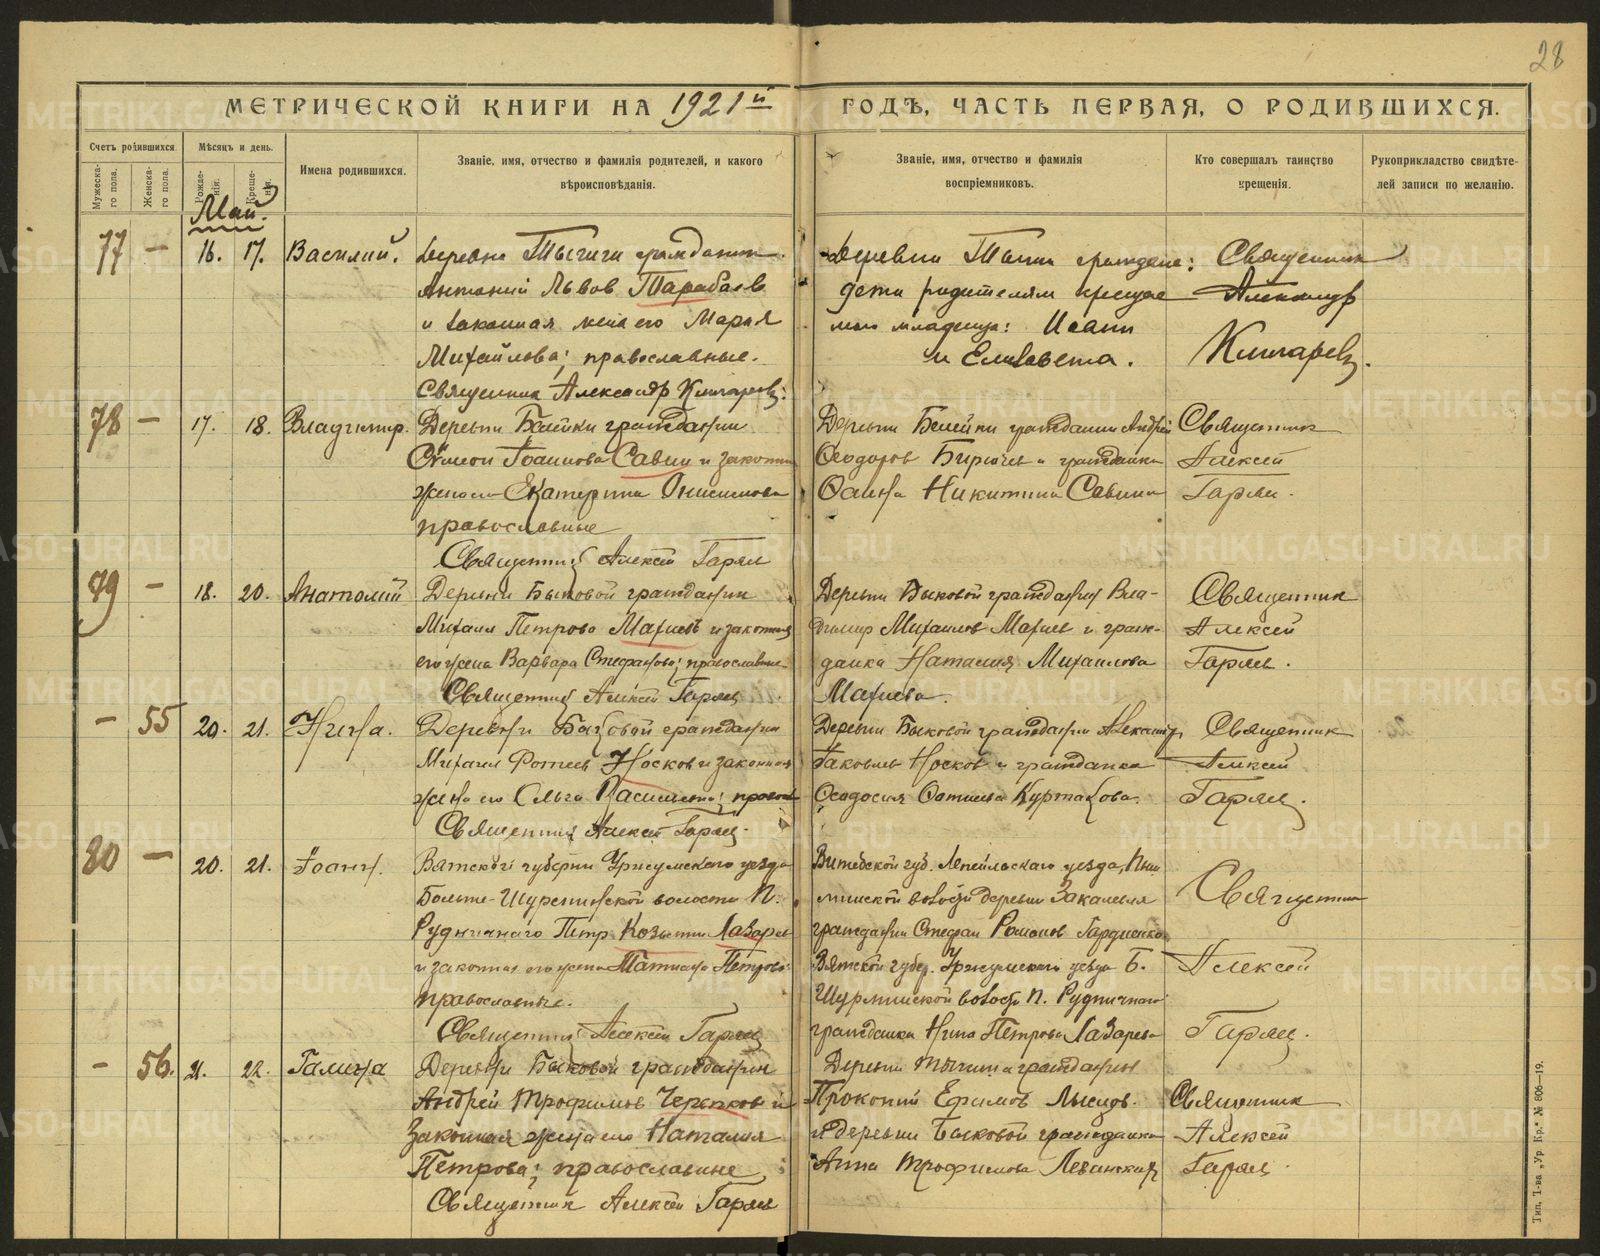 28
МЕТРИЧЕСКОЙ КНИГИ НА 1921й ГОДЪ, ЧАСТЬ ПЕРВАЯ, О РОДИВШИХСЯ.
Счетъ родившихся.
Мѣсяцъ и день.
Имена родившихся.
Званіе, имя, отчество и фамилія родителей, и какого
вѣроисповѣданія.
Званіе, имя, отчество и фамилія
воспріемниковъ.
Кто совершалъ таинство
крещенія.
Рукоприкладство свидѣте-
лей записи по желанію.
Мужеска-
го пола.
Женска-
го пола.
Рожде-
нія.
Креще-
нія.
Май.
77 — 16. 17. Василий.
Антоний Львов Тарабаев
и законная жена его Мария
Михайлова; православные.
Священник Александр
Деревни граждане:
дети родителям крещае
мого младенца: Иоанн
и Елисавета.
Священник
Александр
78 — 17. 18. Владимир.
Деревни гражданин
Симеон Иоаннов Савин и законная
жена его Екатерина Онисимова
православные
Священник Алексей Гаряев
Деревни гражданин Андрей
Феодоров Бирючев и гражданка
Никитина Савина
Священник
Алексей
Гаряев.
79 — 18. 20. Анатолий
Деревни Быковой гражданин
Михаил Петров и законная
его жена Варвара Стефанова; православные
Священник Алексей Гаряев
Деревни Быковой гражданин Вла-
димир Михаилов и граж-
данка Наталия Михаилова
Священник
Алексей
Гаряев.
— 55 20. 21. Нина.
Деревни гражданин
Михаил Фотиев Носков и законная
жена его Ольга Васильева; правосл
Священник Алексей Гаряев.
Деревни Быковой гражданин Александр
Яковлев Носков и гражданка
Феодосия Фотиева
Священник
Алексей
Гаряев.
80 — 20. 21. Иоанн.
Вятской губернии Уржумского уезда
Больше-Шурминской волости П.
Рудничного Петр Козьмин Лазарев
и законная его жена Татиана Петрова
православные.
Священник Алексей Гаряев
Витебской губ. Лепельскаго уезда,
волости деревни
гражданин Стефан Романов
Вятской губер. Уржумскаго уезда Б.
Шурминской волости П. Рудничнаго
гражданка Нина Петрова Лазарева
Священник
Алексей
Гаряев.
— 56. 21. 22. Галина
Деревни Быковой гражданин
Андрей Трофимов Черепков и
законная жена его Наталия
Петрова; православные
Священник Алексей Гаряев
Деревни гражданин
Прокопий Ефимов
и деревни Быковой гражданка
Анна Трофимова
Священник
Алексей
Гаряев.
Тип. Т-ва „Ур. Кр." № 606—19.
METRIKI.GASO-URAL.RU